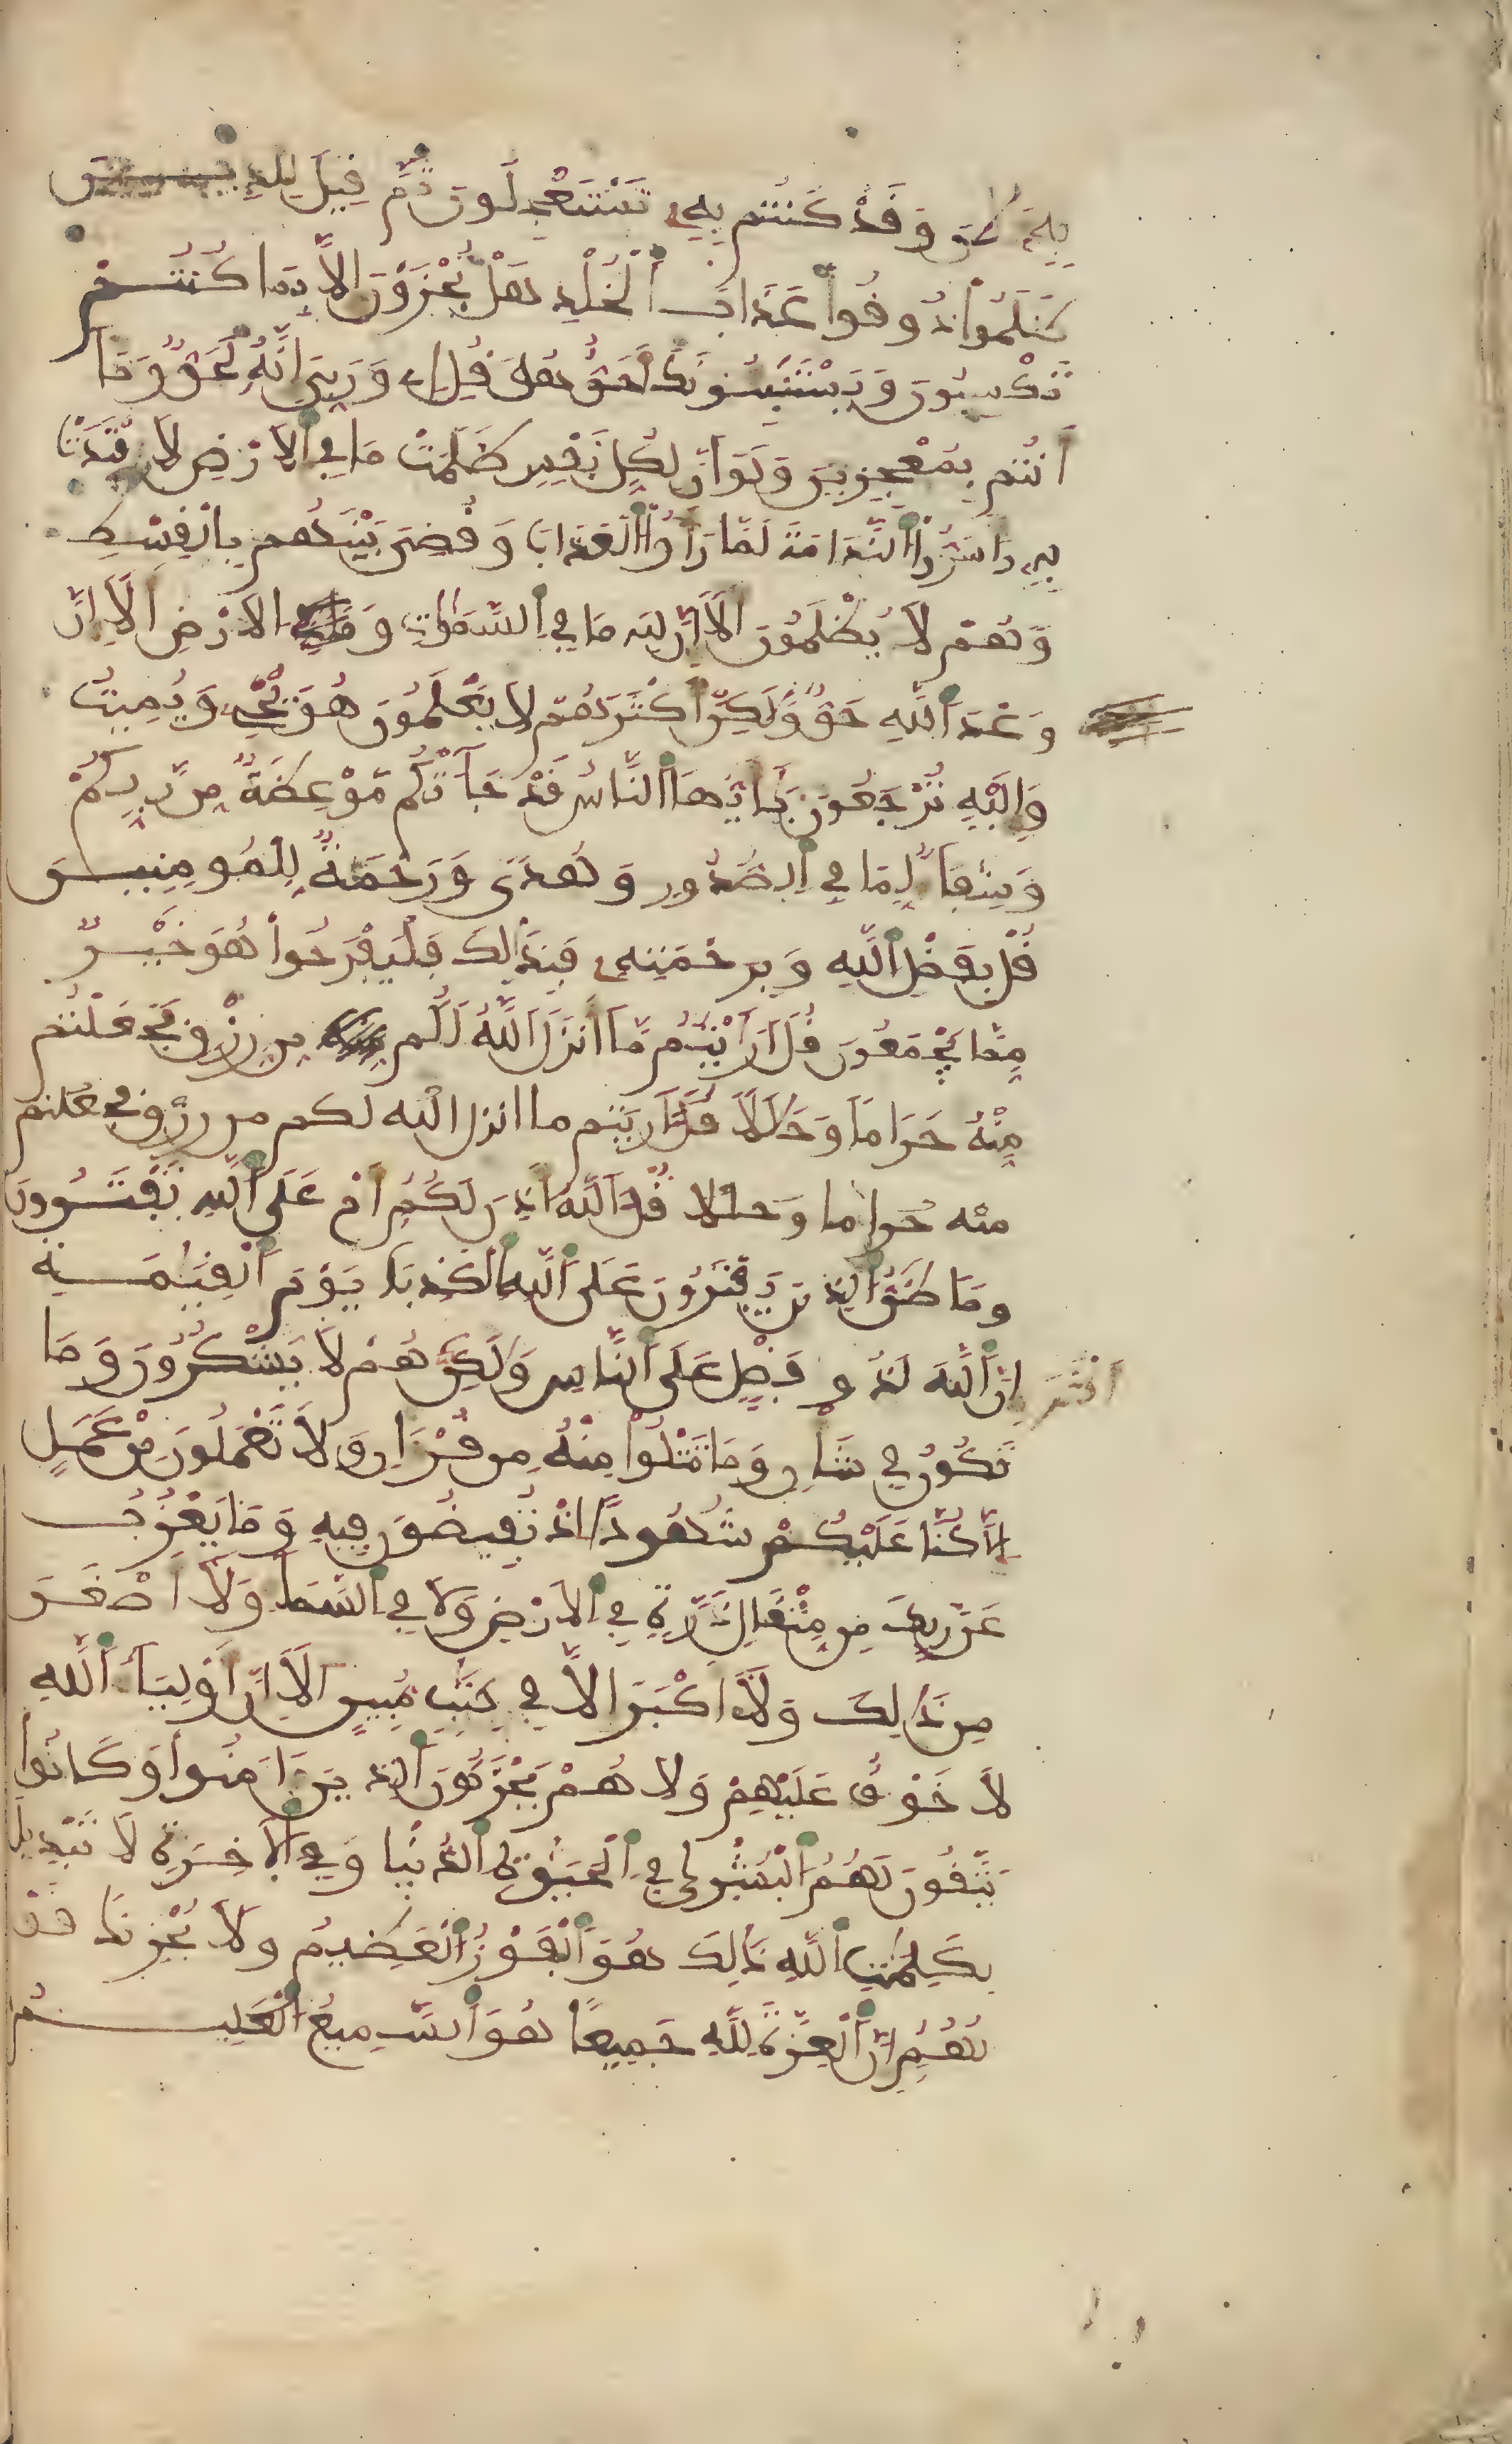 بِهِۦٓ ءَآلَٰنَ وَقَدْ كُنتُم بِهِۦ تَسْتَعْجِلُونَ ثُمَّ قِيلَ لِلذِينَ
ظَلَمُواْ ذُوقُواْ عَذَابَ اَ۬لْخُلْدِ هَلْ تُجْزَوْنَ إِلَّا بِمَا كُنتُمْ
تَكْسِبُونَ وَيَسْتَنۢبِـُٔونَكَ أَحَقٌّ هُوَ قُلِ اِے وَرَبِّيَ إِنَّهُۥ لَحَقٌّ وَمَا
أَنتُم بِمُعْجِزِينَ وَلَوَ اَنَّ لِكُلِّ نَفْسٍ ظَلَمَتْ مَا فِي اِ۬لَارْضِ لَافْتَدَتْ
بِهِۦ وَأَسَرُّواْ اُ۬لنَّدَامَةَ لَمَّا رَأَوُاْ اُ۬لْعَذَابَ وَقُضِيَ بَيْنَهُم بِالْقِسْطِ
وَهُمْ لَا يُظْلَمُونَ أَلَآ إِنَّ لِلهِ مَا فِي اِ۬لسَّمَٰوَٰتِ وَ الَارْضِ أَلَآ إِنَّ
وَعْدَ اَ۬للَّهِ حَقٌّ وَلَٰكِنَّ أَكْثَرَهُمْ لَا يَعْلَمُونَ هُوَ يُحْيِۦ وَيُمِيتُ
وَإِلَيْهِ تُرْجَعُونَ يَٰٓأَيُّهَا اَ۬لنَّاسُ قَدْ جَآءَتْكُم مَّوْعِظَةٌ مِّن رَّبِّكُمْ
وَشِفَآءٌ لِّمَا فِي اِ۬لصُّدُورِ وَهُدًى وَرَحْمَةٌ لِّلْمُومِنِينَ
قُلْ بِفَضْلِ اِ۬للَّهِ وَبِرَحْمَتِهِۦ فَبِذَٰلِكَ فَلْيَفْرَحُواْ هُوَ خَيْرٌ
مِّمَّا يَجْمَعُونَ قُلَ اَرَٰٓيْتُم مَّآ أَنزَلَ اَ۬للَّهُ لَكُم مِّن رِّزْقٍ فَجَعَلْتُم
مِّنْهُ حَرَامًا وَحَلَٰلًا قُلَ اَرَيْتُم ما انزل الله لكم من رزق فجعلتم
منه حراما وحللا قُلَ آللَّهُ أَذِنَ لَكُمُ أَمْ عَلَى اَ۬للَّهِ تَفْتَرُونَ
وَمَا ظَنُّ اُ۬لذِينَ يَفْتَرُونَ عَلَى اَ۬للَّهِ اِ۬لْكَذِبَ يَوْمَ اَ۬لْقِيَٰمَةِ
إِنَّ اَ۬للَّهَ لَذُو فَضْلٍ عَلَى اَ۬لنَّاسِ وَلَٰكِنَّ أَكْثَرَهُمْ لَا يَشْكُرُونَ وَمَا
تَكُونُ فِي شَأْنٍ وَمَا تَتْلُواْ مِنْهُ مِن قُرْءَانٍ وَلَا تَعْمَلُونَ مِنْ عَمَلٍ
اِلَّا كُنَّا عَلَيْكُمْ شُهُودًا اِذْ تُفِيضُونَ فِيهِ وَمَا يَعْزُبُ
عَن رَّبِّكَ مِن مِّثْقَالِ ذَرَّةٍ فِي اِ۬لَارْضِ وَلَا فِي اِ۬لسَّمَآءِ وَلَآ أَصْغَرَ
مِن ذَٰلِكَ وَلَآ أَكْبَرَ إِلَّا فِي كِتَٰبٍ مُّبِينٍ أَلَآ إِنَّ أَوْلِيَآءَ اَ۬للَّهِ
لَا خَوْفٌ عَلَيْهِمْ وَلَا هُمْ يَحْزَنُونَ اَ۬لذِينَ ءَامَنُواْ وَكَانُواْ
يَتَّقُونَ لَهُمُ اُ۬لْبُشْر۪يٰ فِي اِ۬لْحَيَوٰةِ اِ۬لدُّنْيا وَفِي اِ۬لَاخِرَةِ لَا تَبْدِيلَ
لِكَلِمَٰتِ اِ۬للَّهِ ذَٰلِكَ هُوَ اَ۬لْفَوْزُ اُ۬لْعَظِيمُ وَلَا يُحْزِنكَ قَوْ
لُهُمُ إِنَّ اَ۬لْعِزَّةَ لِلَّهِ جَمِيعًا هُوَ اَ۬لسَّمِيعُ اُ۬لْعَلِيمُ